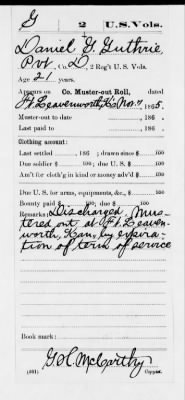 G 2 U.S. Vols.
Daniel G. Guthrie
Pvt., Co. D, 2 Reg't U.S. Vols.
Age 21 years.
Appears on Co. Muster-out Roll, dated
Ft. Leavenworth, Ks Nov. 7, 1865.
Muster-out to date , 186 .
Last paid to , 186 .
Clothing account:
Last settled , 186 ; drawn since $ 100
Due soldier $ 100; due U. S. $ 100
Am't for cloth'g in kind or money adv'd $ 100
Due U. S. for arms, equipments, &c., $ 100
Bounty paid $ 100; due $ 100
Remarks: Discharged, Mus-
tered out at Ft. Leaven-
worth, Kan, by expira-
tion of term of service
Book mark:
G. R. McCarthy
(361) Copyist.